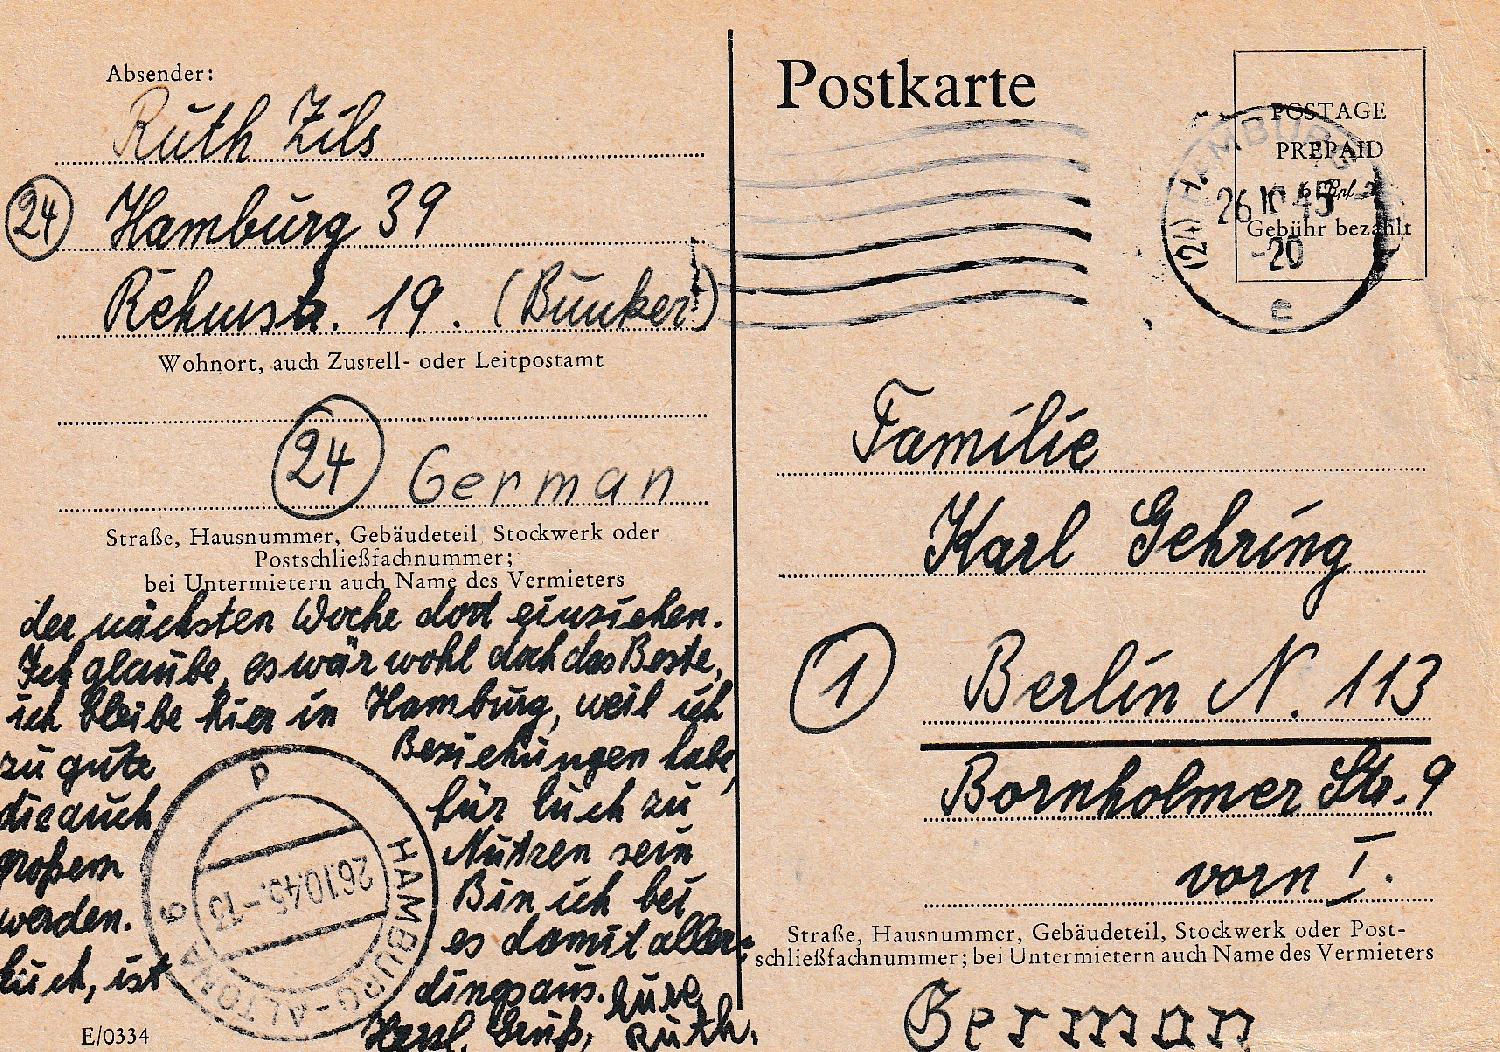 Absender:
Ruth Zils
24
Hamburg 39
Rehmstr. 19. (Bunker)
Wohnort, auch Zustell- oder Leitpostamt
24 German
Straße, Hausnummer, Gebäudeteil, Stockwerk oder
Postschließfachnummer;
bei Untermietern auch Name des Vermieters
der nächsten Woche dort einziehen.
Ich glaube, es wär wohl doch das Beste,
ich bleibe hier in Hamburg, weil ich
zu gute Beziehungen habe,
die auch für Euch zu
großem Nutzen sein
werden. Bin ich bei
Euch, ist es damit aller-
dings aus. Eure
Herzl. Gruß, Ruth.
HAMBURG-ALTONA
26.10.45.-13
P
E/0334
Postkarte
POSTAGE
PREPAID
6 Rpf
Gebühr bezahlt
(24) HAMBURG
26.10.45
-20
e
Familie
Karl Gehring
1 Berlin N. 113
Bornholmer Str. 9
vorn I.
Straße, Hausnummer, Gebäudeteil, Stockwerk oder Post-
schließfachnummer; bei Untermietern auch Name des Vermieters
German